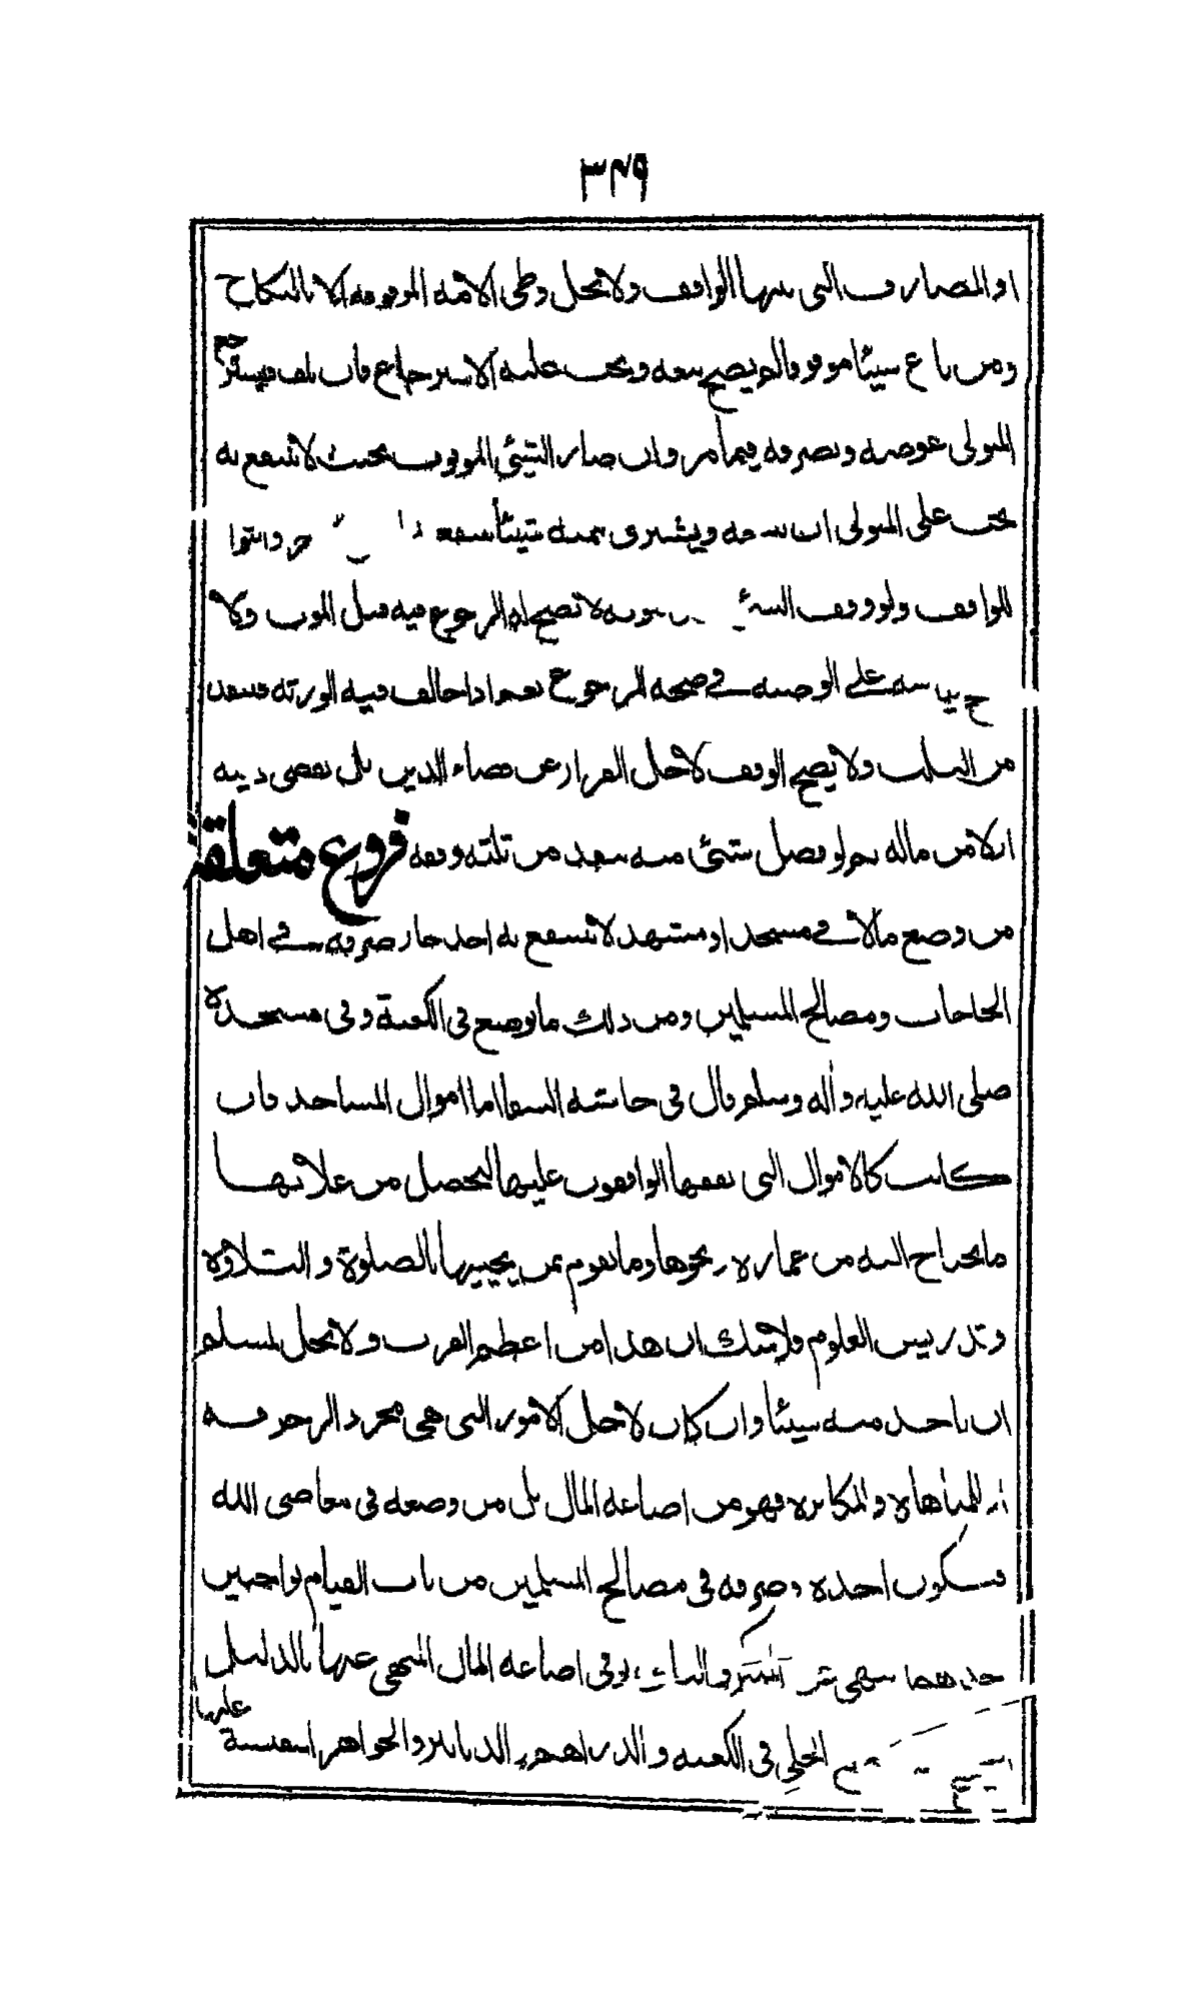 ٣٤٩
او المصارف التى بينها الواقف ولا يحل وطى الامة الموقوفة الا بالنكاح
ومن باع شيئا موقوفا لم يصح بيعه ويجب عليه الاسترجاع فان تلف فيسترجع
المتولى عوضه ويصرفه فيما مر وان صار الشيئ الموقوف بحيث لا ينتفع به
يجب على المتولى ان يبيعه ويشترى بثمنه شيئا ينفعه
للواقف ولو وقف لا يصح له الرجوع فيه قبل الموت ولا
على الوصية فى صحة الرجوع نعم اذا خالف فيه الورثة فينفذ
من الثلث ولا يصح الوقف لاجل الفرار عن قضاء الدين بل يقضى دينه
اولا من ماله ثم لو فضل شيئ منه ينفذ من ثلثه وقفه فروع متعلقة
من وضع مالا فى مسجد او مشهد لا ينتفع به احد جاز صرفه فى اهل
الحاجات ومصالح المسلمين ومن ذلك ما يوضع فى الكعبة وفى مسجده
صلى الله عليه وآله وسلم قال فى حاشية الشفا اما اموال المساجد فان
كانت كالاموال التى يقفها الواقفون عليها ليحصل من غلاتها
ما يحتاج اليه من عمارة ونحوها وما يقوم بمن يحييها بالصلوة والتلاوة
وتدريس العلوم فلا شك ان هذا من اعظم القرب ولا يحل لمسلم
ان ياخذ منه شيئا وان كان لاجل الامور التى هى مجرد الزخرفة
او للمباهاة والمكاثرة فهو من اضاعة المال بل من وضعه فى معاصى الله
فيكون اخذه وصرفه فى مصالح المسلمين من باب القيام بواجبين
المنكر فى اضاعة المال المنهى عنها بالدليل
الحلى فى الكعبة والدراهم والدنانير والجواهر النفيسة عليها